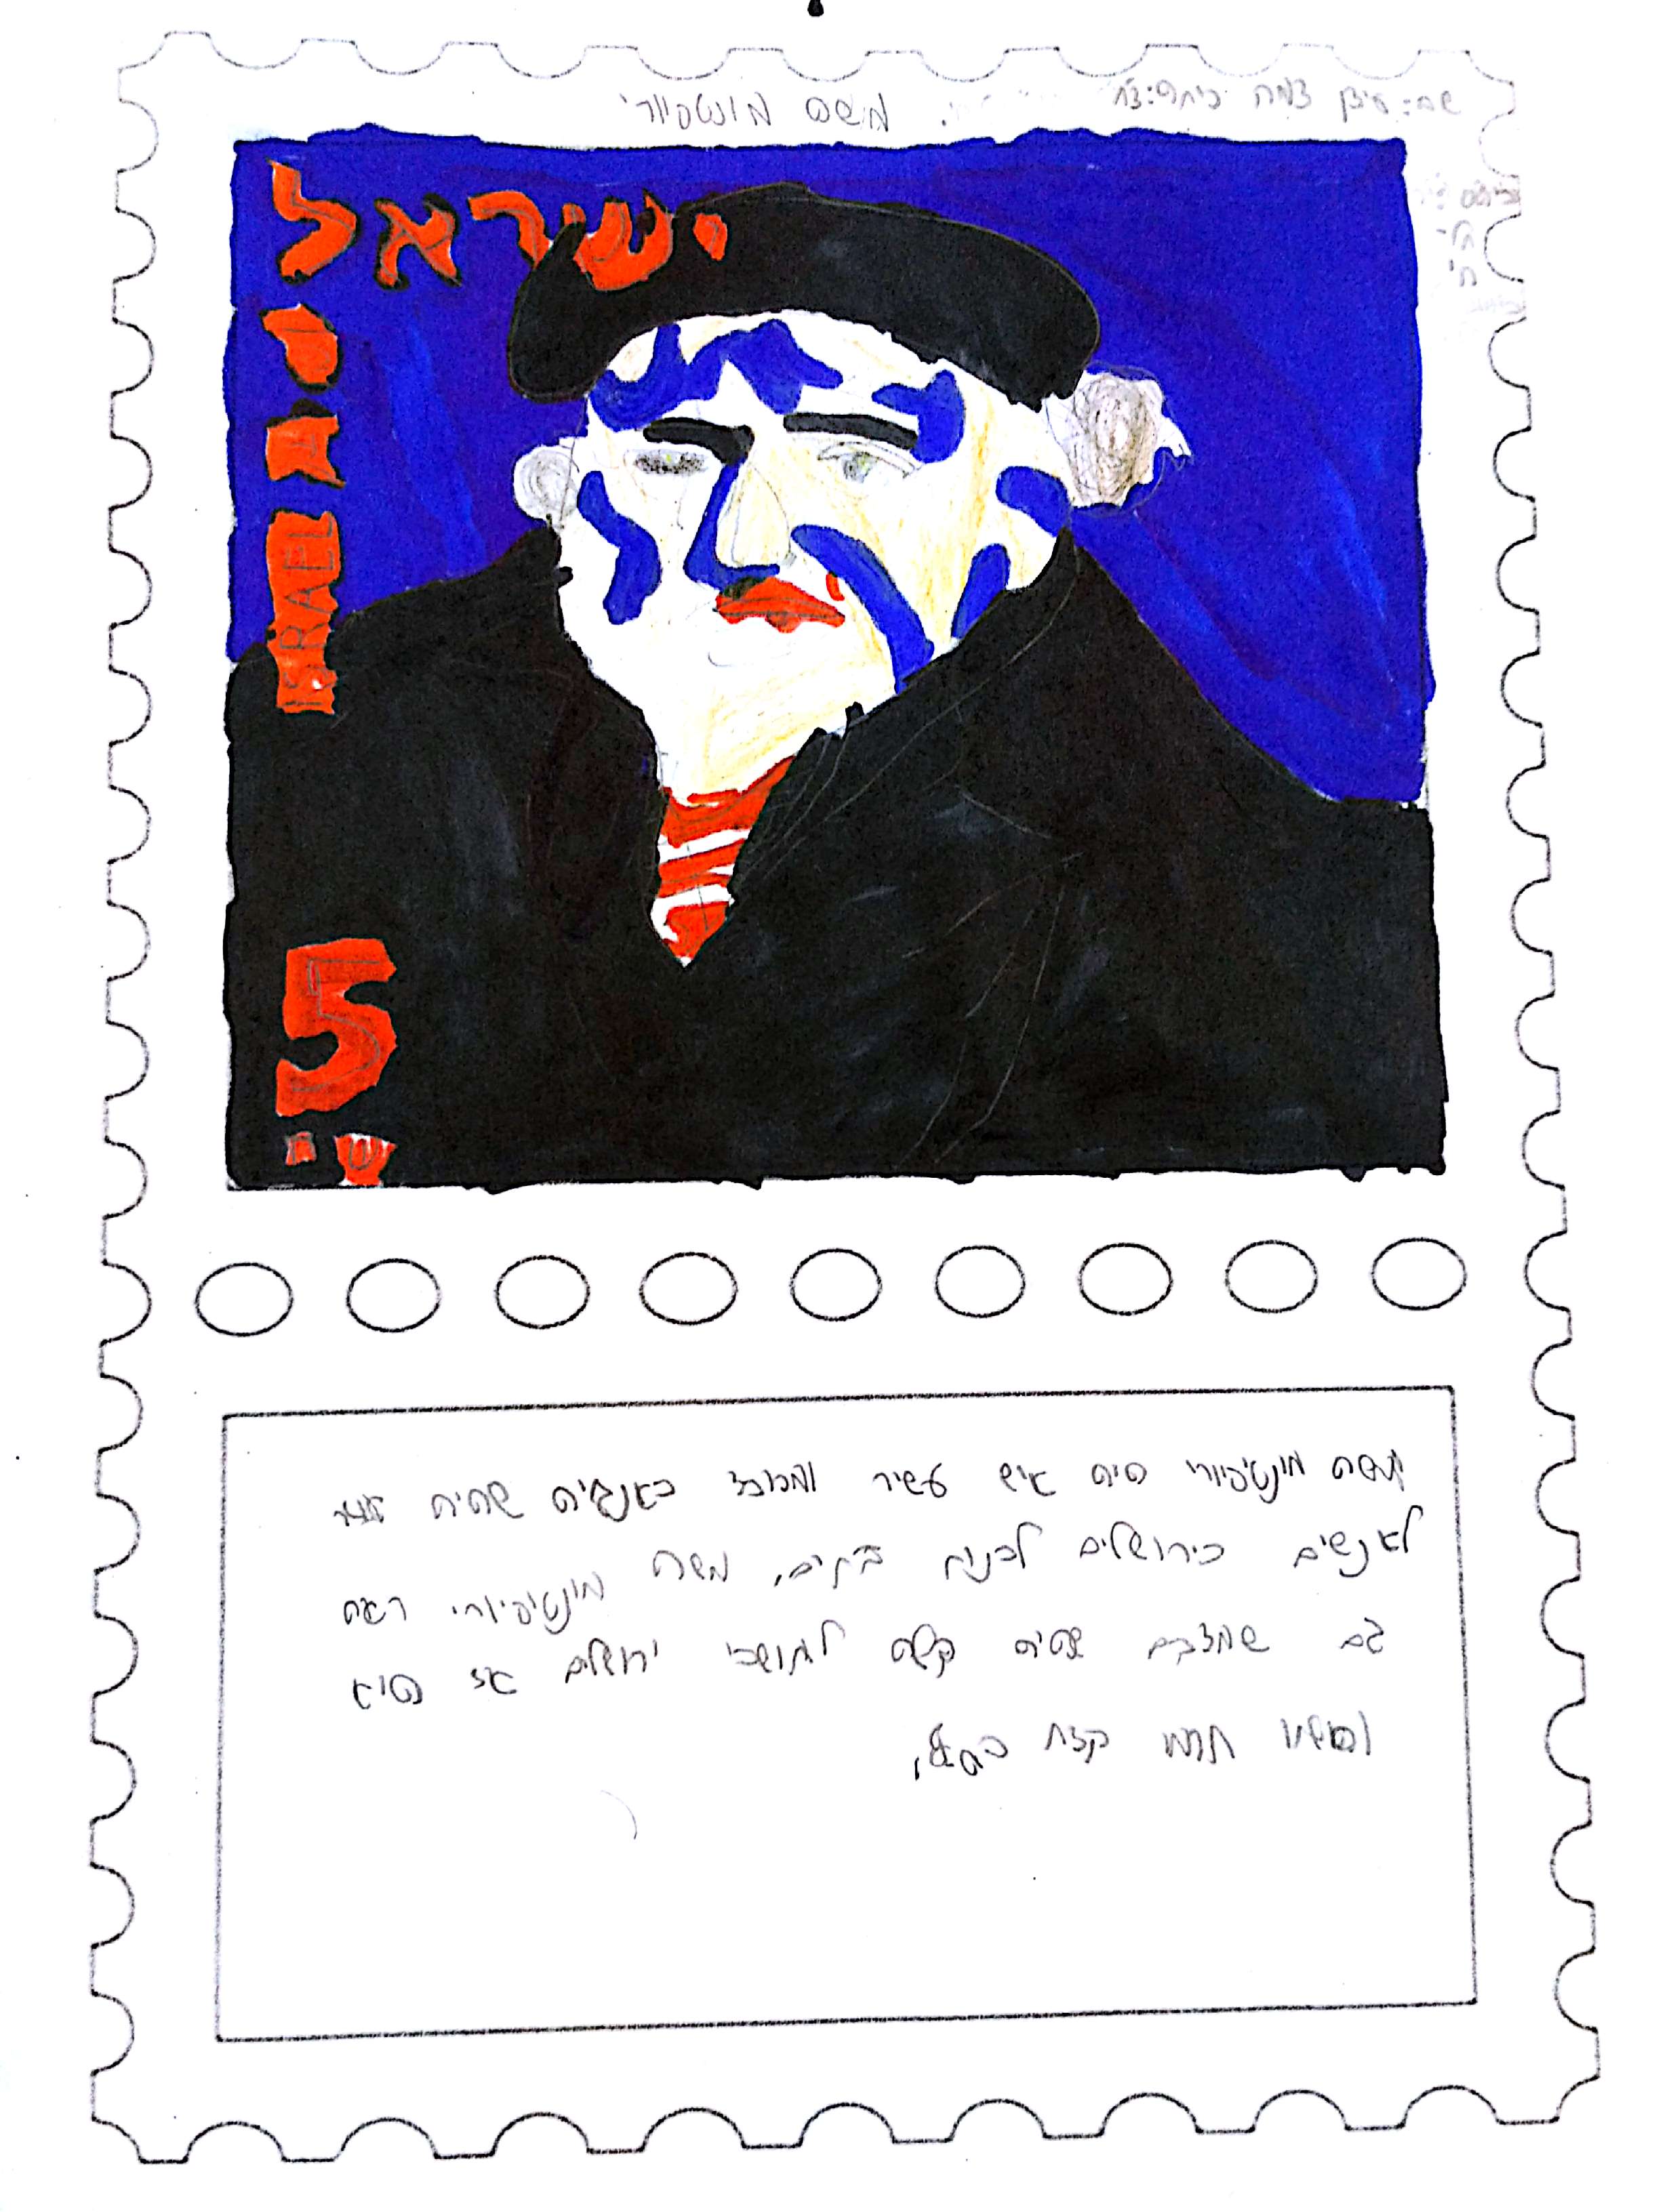 שם: עידן צמח כיתה: ה'
משה מונטפיורי
ישראל
ISRAEL
5
ש"ח
משה מונטיפיורי היה איש עשיר ומכובד באנגליה שהיה עוזר
לאנשים בירושלים לבנות בתים, משה מונטיפיורי ראה
גם שמצבם שהיה קשה לתושבי ירושלים אז הוא
ואשתו תרמו קצת כסף,